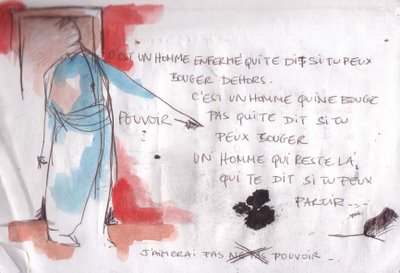 C'EST UN HOMME ENFERMÉ QUI TE DIT SI TU PEUX
BOUGER DEHORS.
C'EST UN HOMME QUI NE BOUGE
POUVOIR → PAS QUI TE DIT SI TU
PEUX BOUGER
UN HOMME QUI RESTE LÀ,
QUI TE DIT SI TU PEUX
PARTIR...
J'AIMERAI PAS POUVOIR.